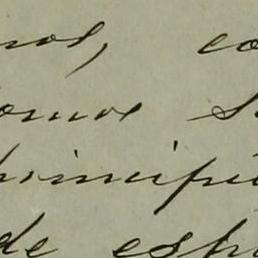 nos, co
omos s
principi
de esp